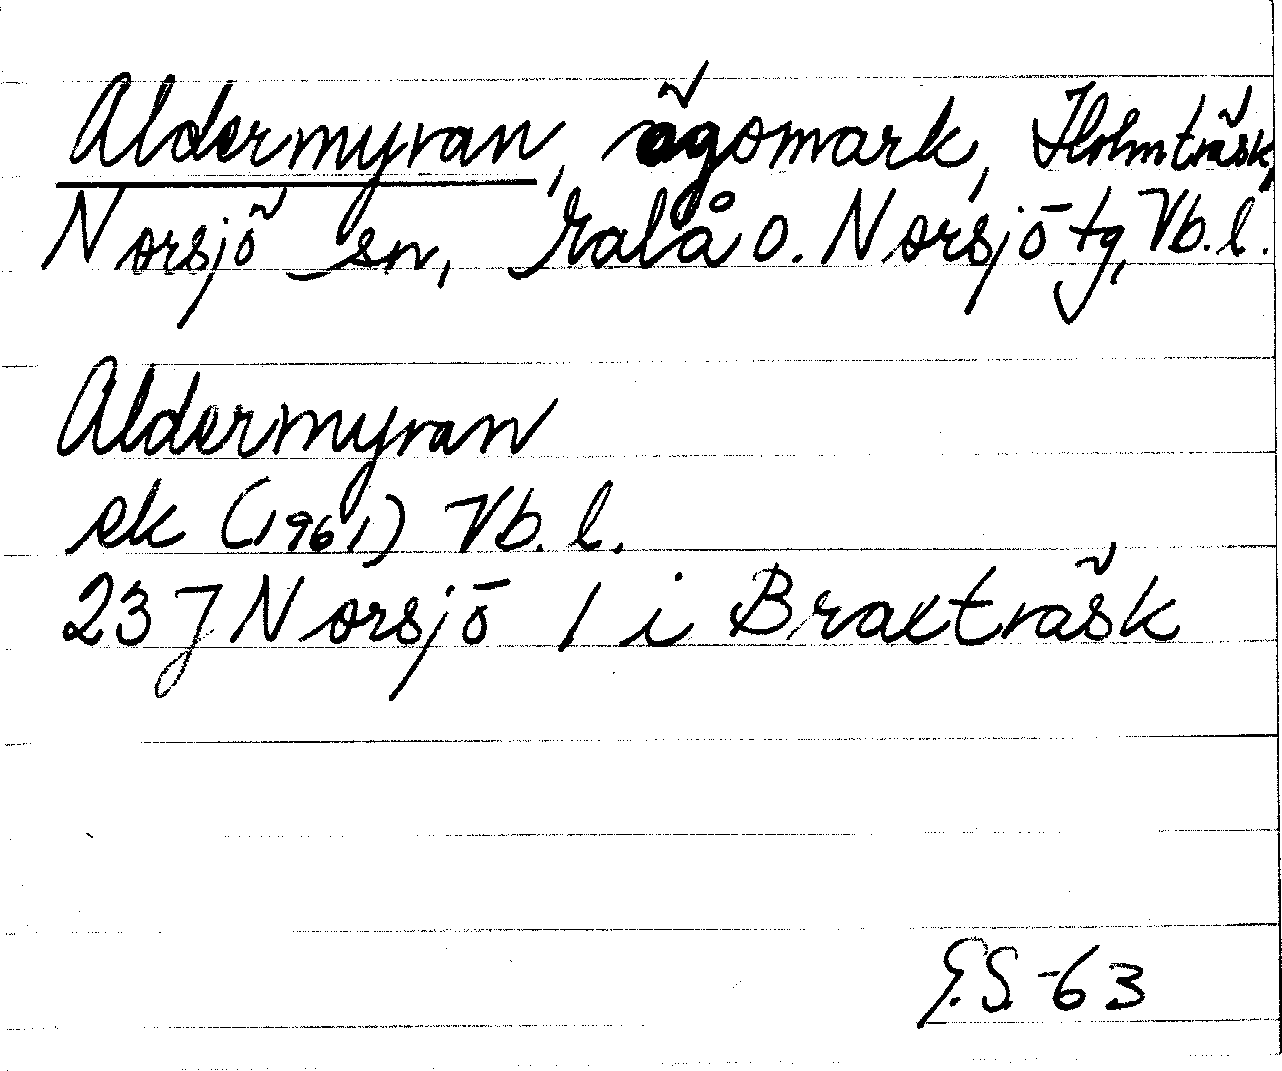 Aldermyran, ägomark, Holmträsk,
Norsjö sn, Malå o. Norsjö tg, Vb. l.
Aldermyran
ek (1961) Vb. l.
23 J Norsjö 1 i Braxträsk
G.S. -63